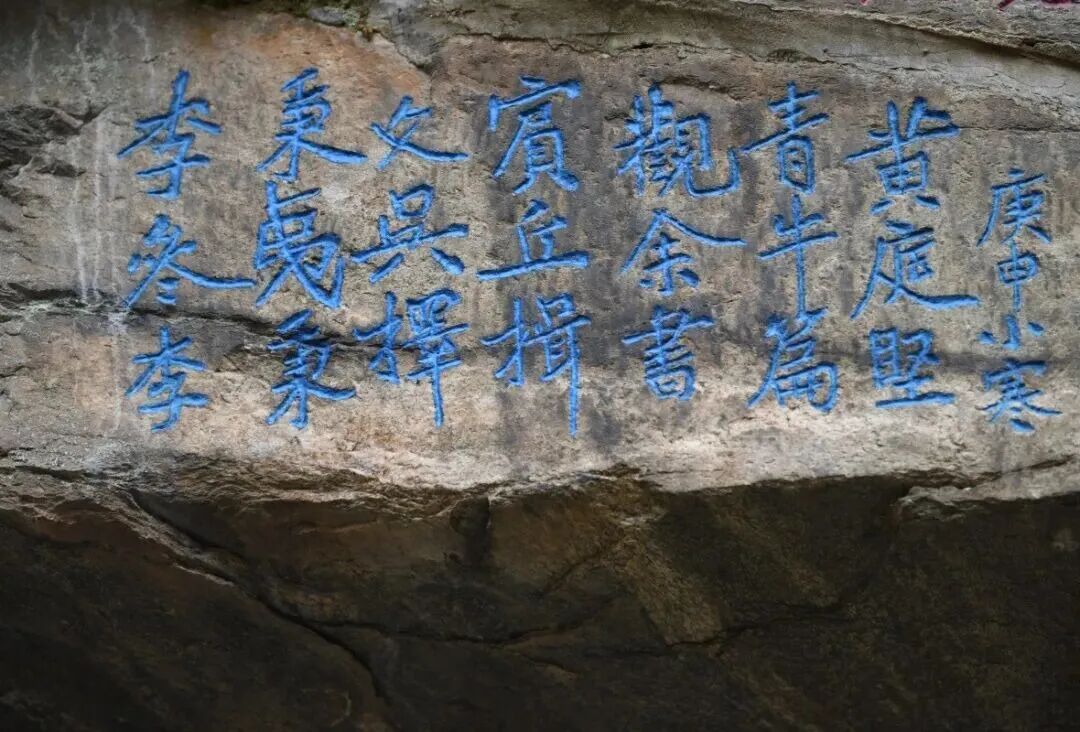 李参李
秉夷秉
文吳擇
賓丘揖
觀余書
青牛篇
黃庭堅
庚申小寒